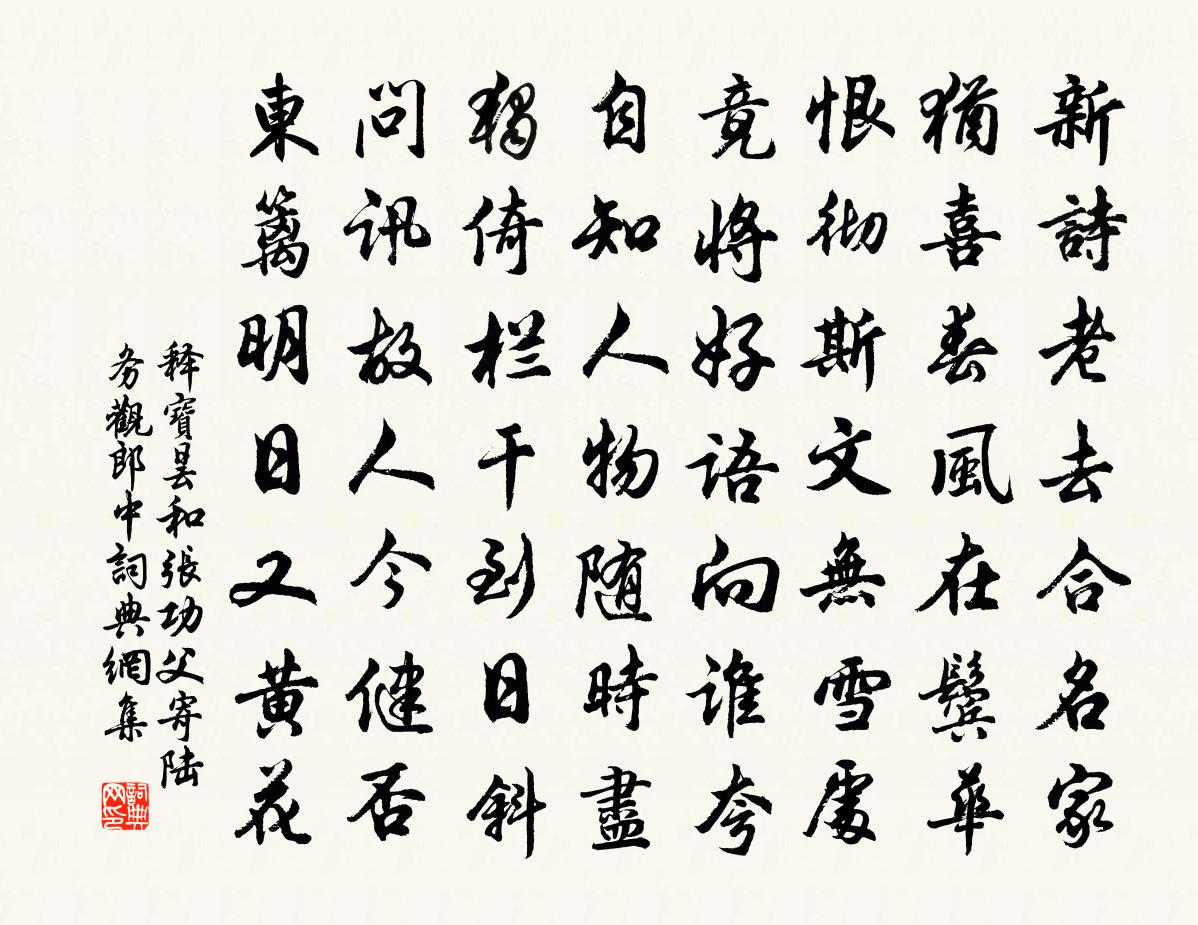 新詩老去合名家
猶喜春風在鬢華
恨彻斯文無雪處
竟將好語向谁夸
自知人物随時盡
獨倚栏干到日斜
問訊故人今健否
東篱明日又黄花
释寶昙和張功父寄陆
务觀郎中詞典網集
詞典
网印